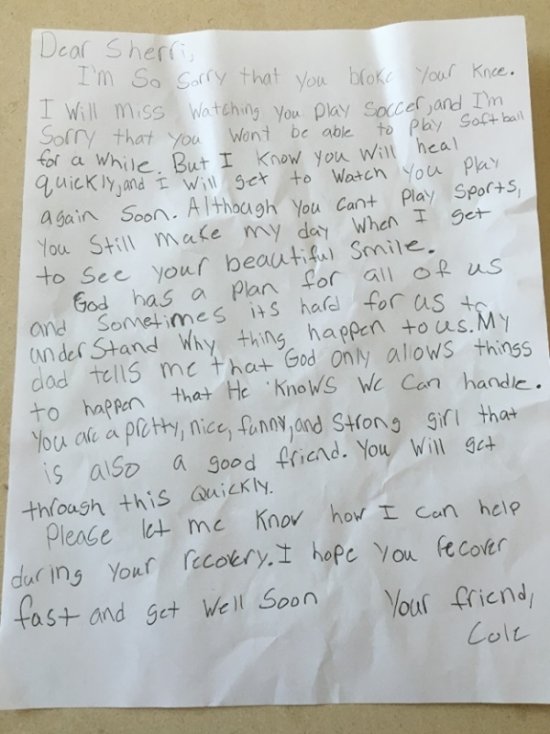 Dear Sherri,
I'm So Sorry that you broke Your Knee.
I Will miss Watching You Play Soccer, and I'm
Sorry that you Wont be able to Play Softball
for a While. But I Know you Will heal
quickly, and I will get to Watch You Play
again Soon. Although you Cant Play Sports,
You Still make my day When I get
to see your beautiful Smile.
God has a Plan for all of us
and Sometimes its hard for us to
understand Why thing happen to us. My
dad tells me that God only allows things
to happen that He Knows We Can handle.
You are a pretty, nice, funny, and Strong girl that
is also a good friend. You Will get
through this Quickly.
Please let me Know how I can help
during Your recovery. I hope You recover
fast and get Well Soon
Your friend,
Cole